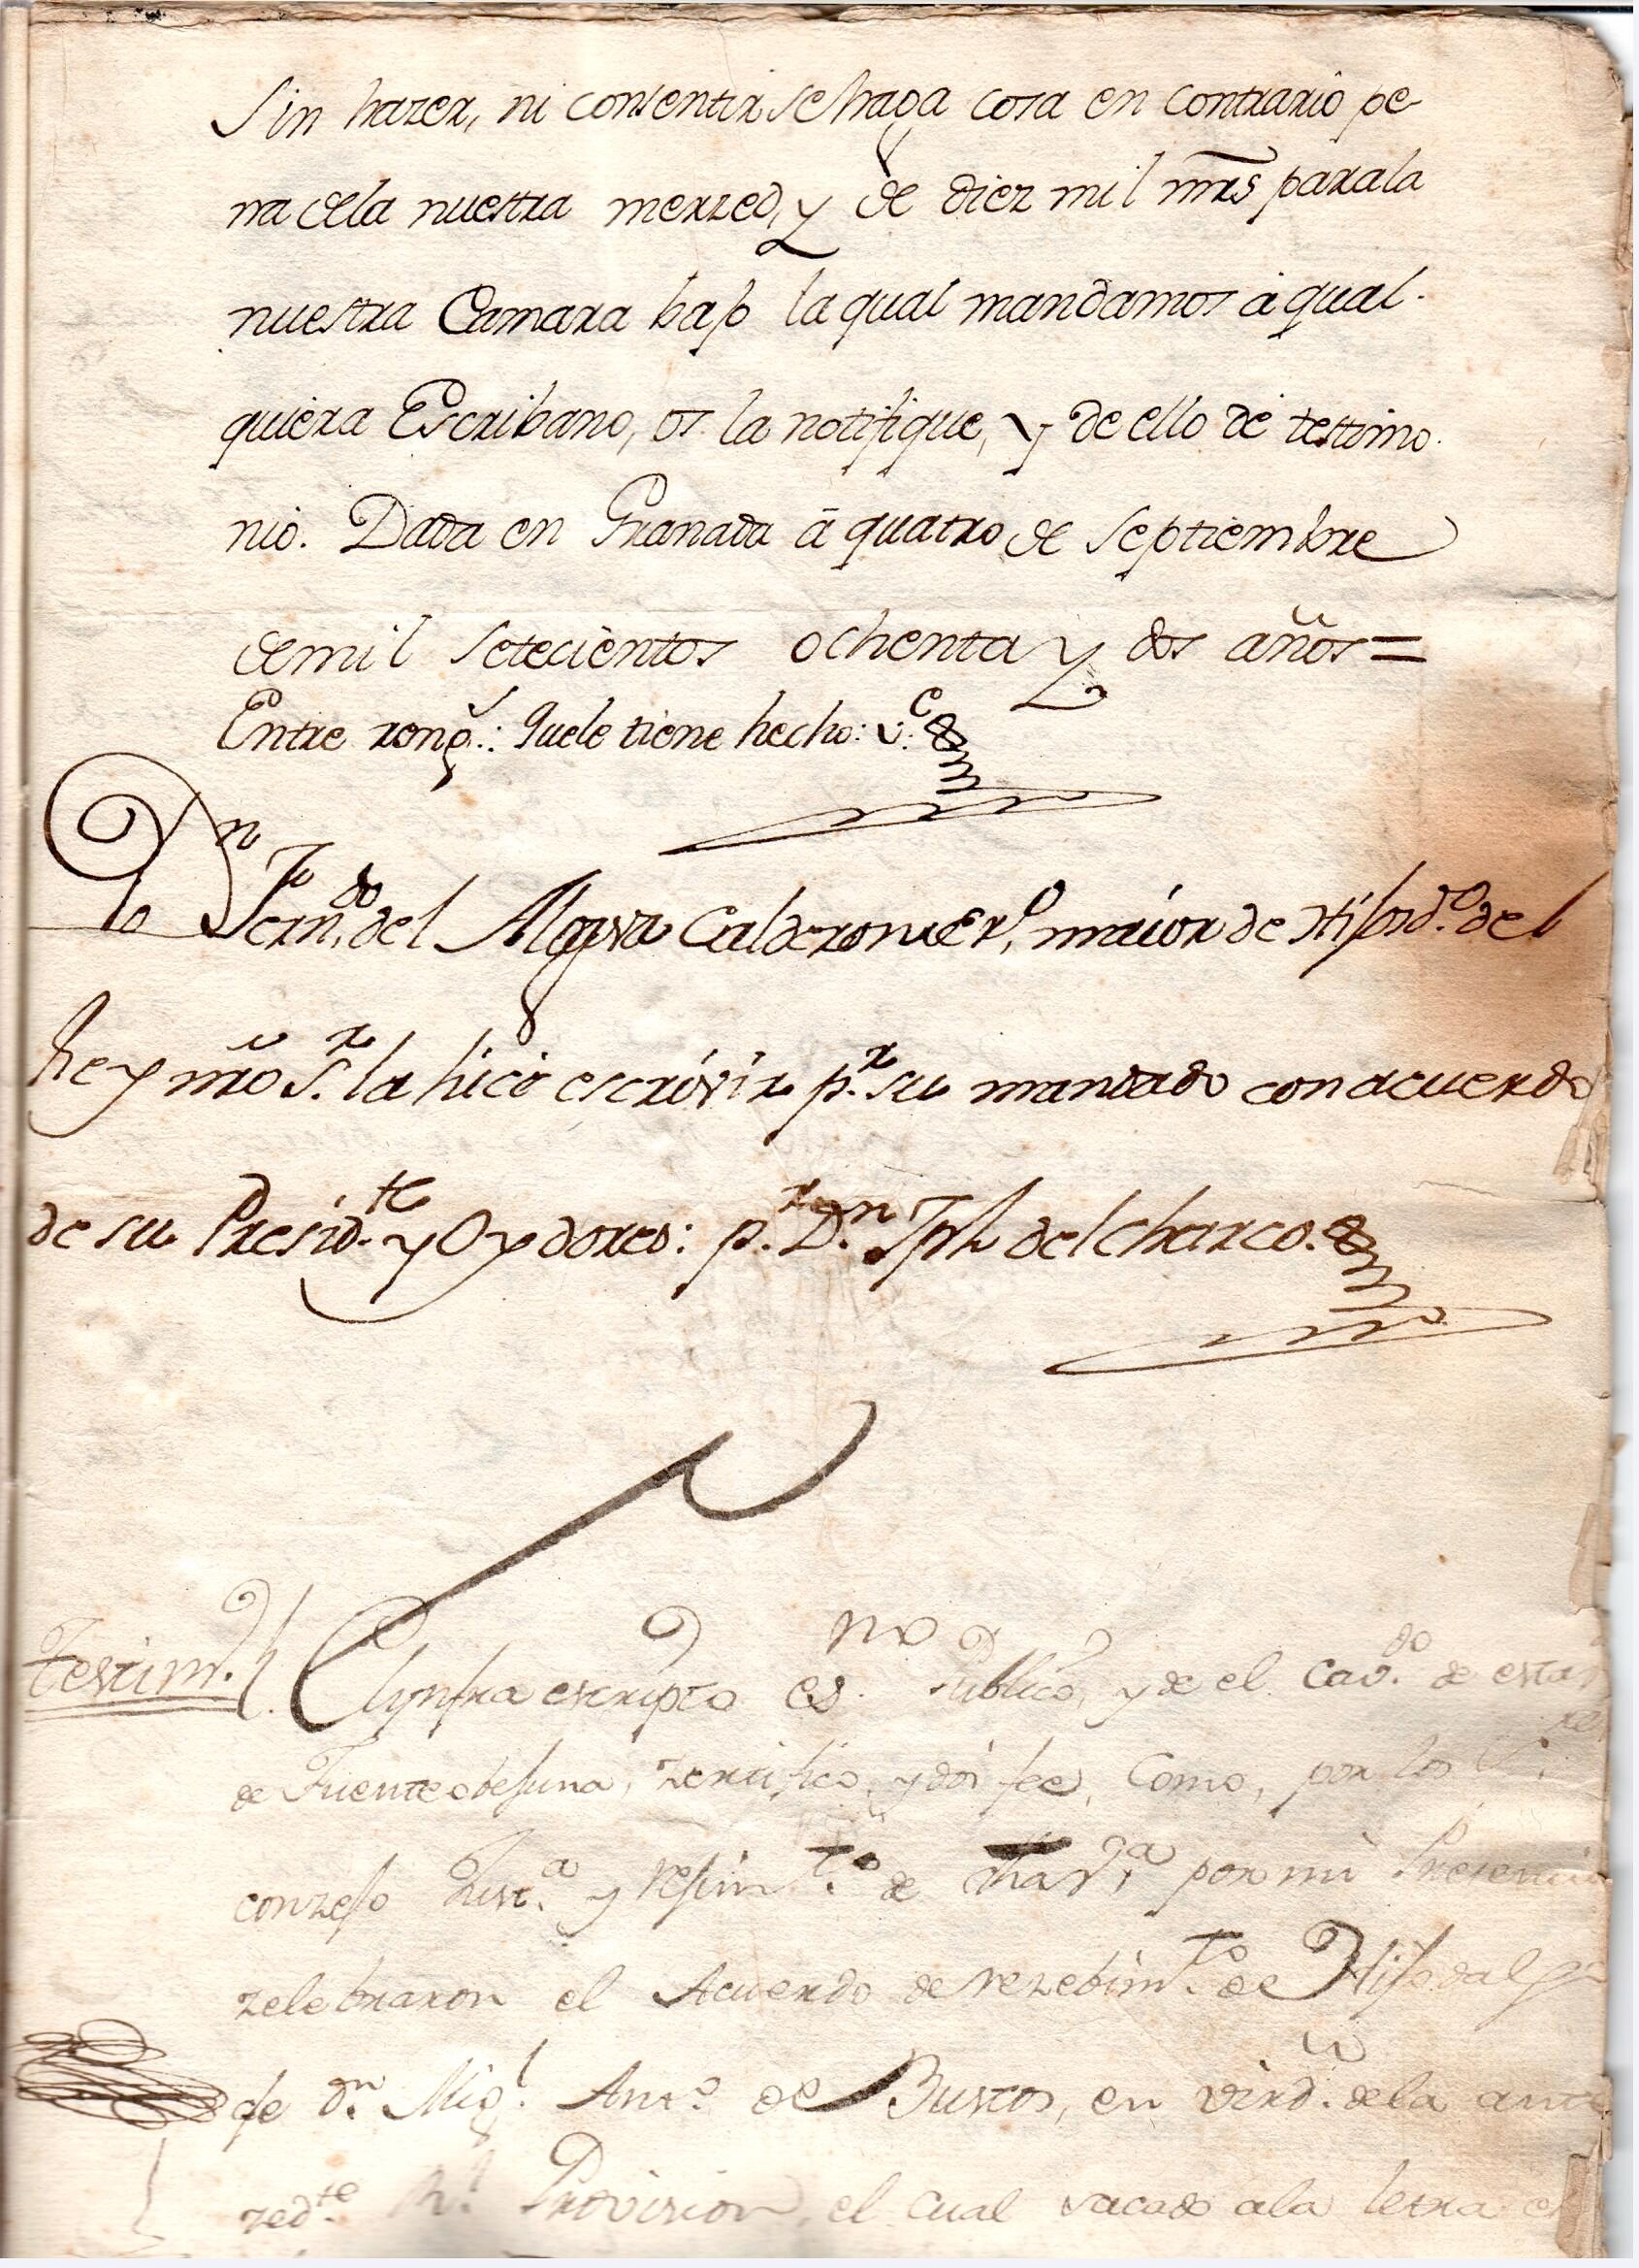 Sin hazer, ni consentir se haga cosa en contrario pe-
na dela nuestra merzed, y de diez mil mrs para la
nuestra Camara bajo la qual mandamos à qual-
quiera Escribano, os la notifique, y de ello de testimo-
nio. Dada en Granada à quatro de Septiembre
de mil setecientos ochenta y dos años =
Entre rong.s: Quele tiene hecho: v.e
Yo Dn Fern.do del Calderon m.or de Hijosd.o del
Rey nro S.r la hice escrivir p.r su mandado con acuerdo
de su Presid.te y Oydores: p.r D.n Jph del charco.
Testim.o
El Ynfraescripto es.no Publico, y de el Cav.do de esta
de Fuente obejuna, zertifico, y doi fee, Como, por los S.res
conzejo Just.a y rejim.to de por mi Presencia
zelebraron el Acuerdo de rezebim.to de Hijodalgo
de D.n Mig.l Ant.o de Bustos, en Vird. dela ante
zed.te R.l Provision, el cual sacado ala letra es